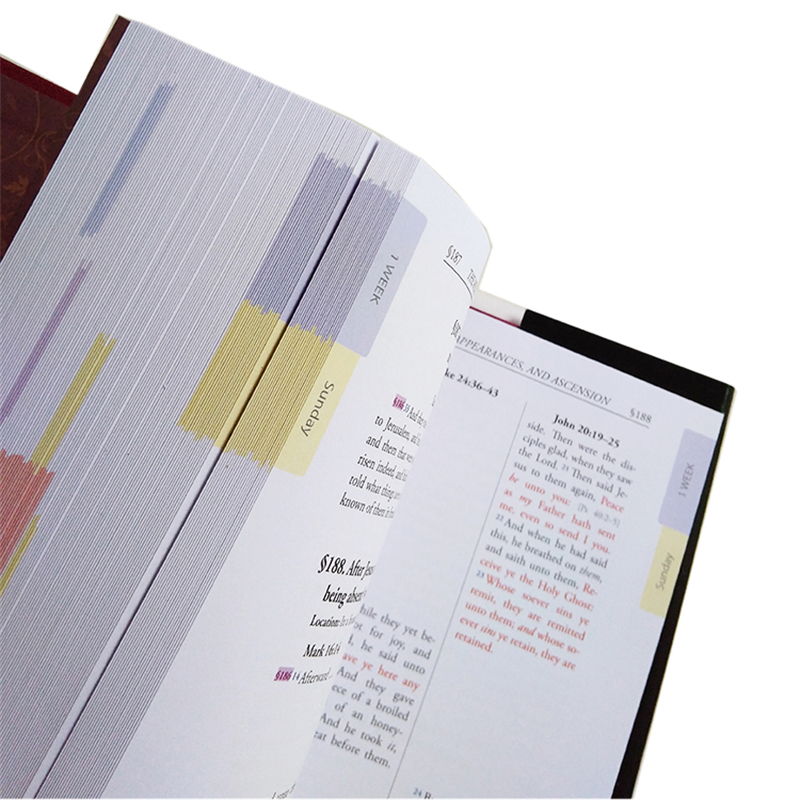 1 WEEK
Sunday
§187 THE
§186 And they
to Jerusalem, and
and them that were
risen indeed, and
told what things
known of them
§188. After Jesus
being absent
Location:
Mark 16:14
§186 14 Afterward
APPEARANCES, AND ASCENSION §188
ke 24:36–43
hile they yet be-
ot for joy, and
d, he said unto
ave ye here any
And they gave
ece of a broiled
of an honey-
And he took it,
eat before them.
John 20:19–25
side. Then were the dis-
ciples glad, when they saw
the Lord. 21 Then said Je-
sus to them again, Peace
be unto you: (Ps. 40:2–5)
as my Father hath sent
me, even so send I you.
22 And when he had said
this, he breathed on them,
and saith unto them, Re-
ceive ye the Holy Ghost:
23 Whose soever sins ye
remit, they are remitted
unto them; and whose so-
ever sins ye retain, they are
retained.
24 B
1 WEEK
Sunday